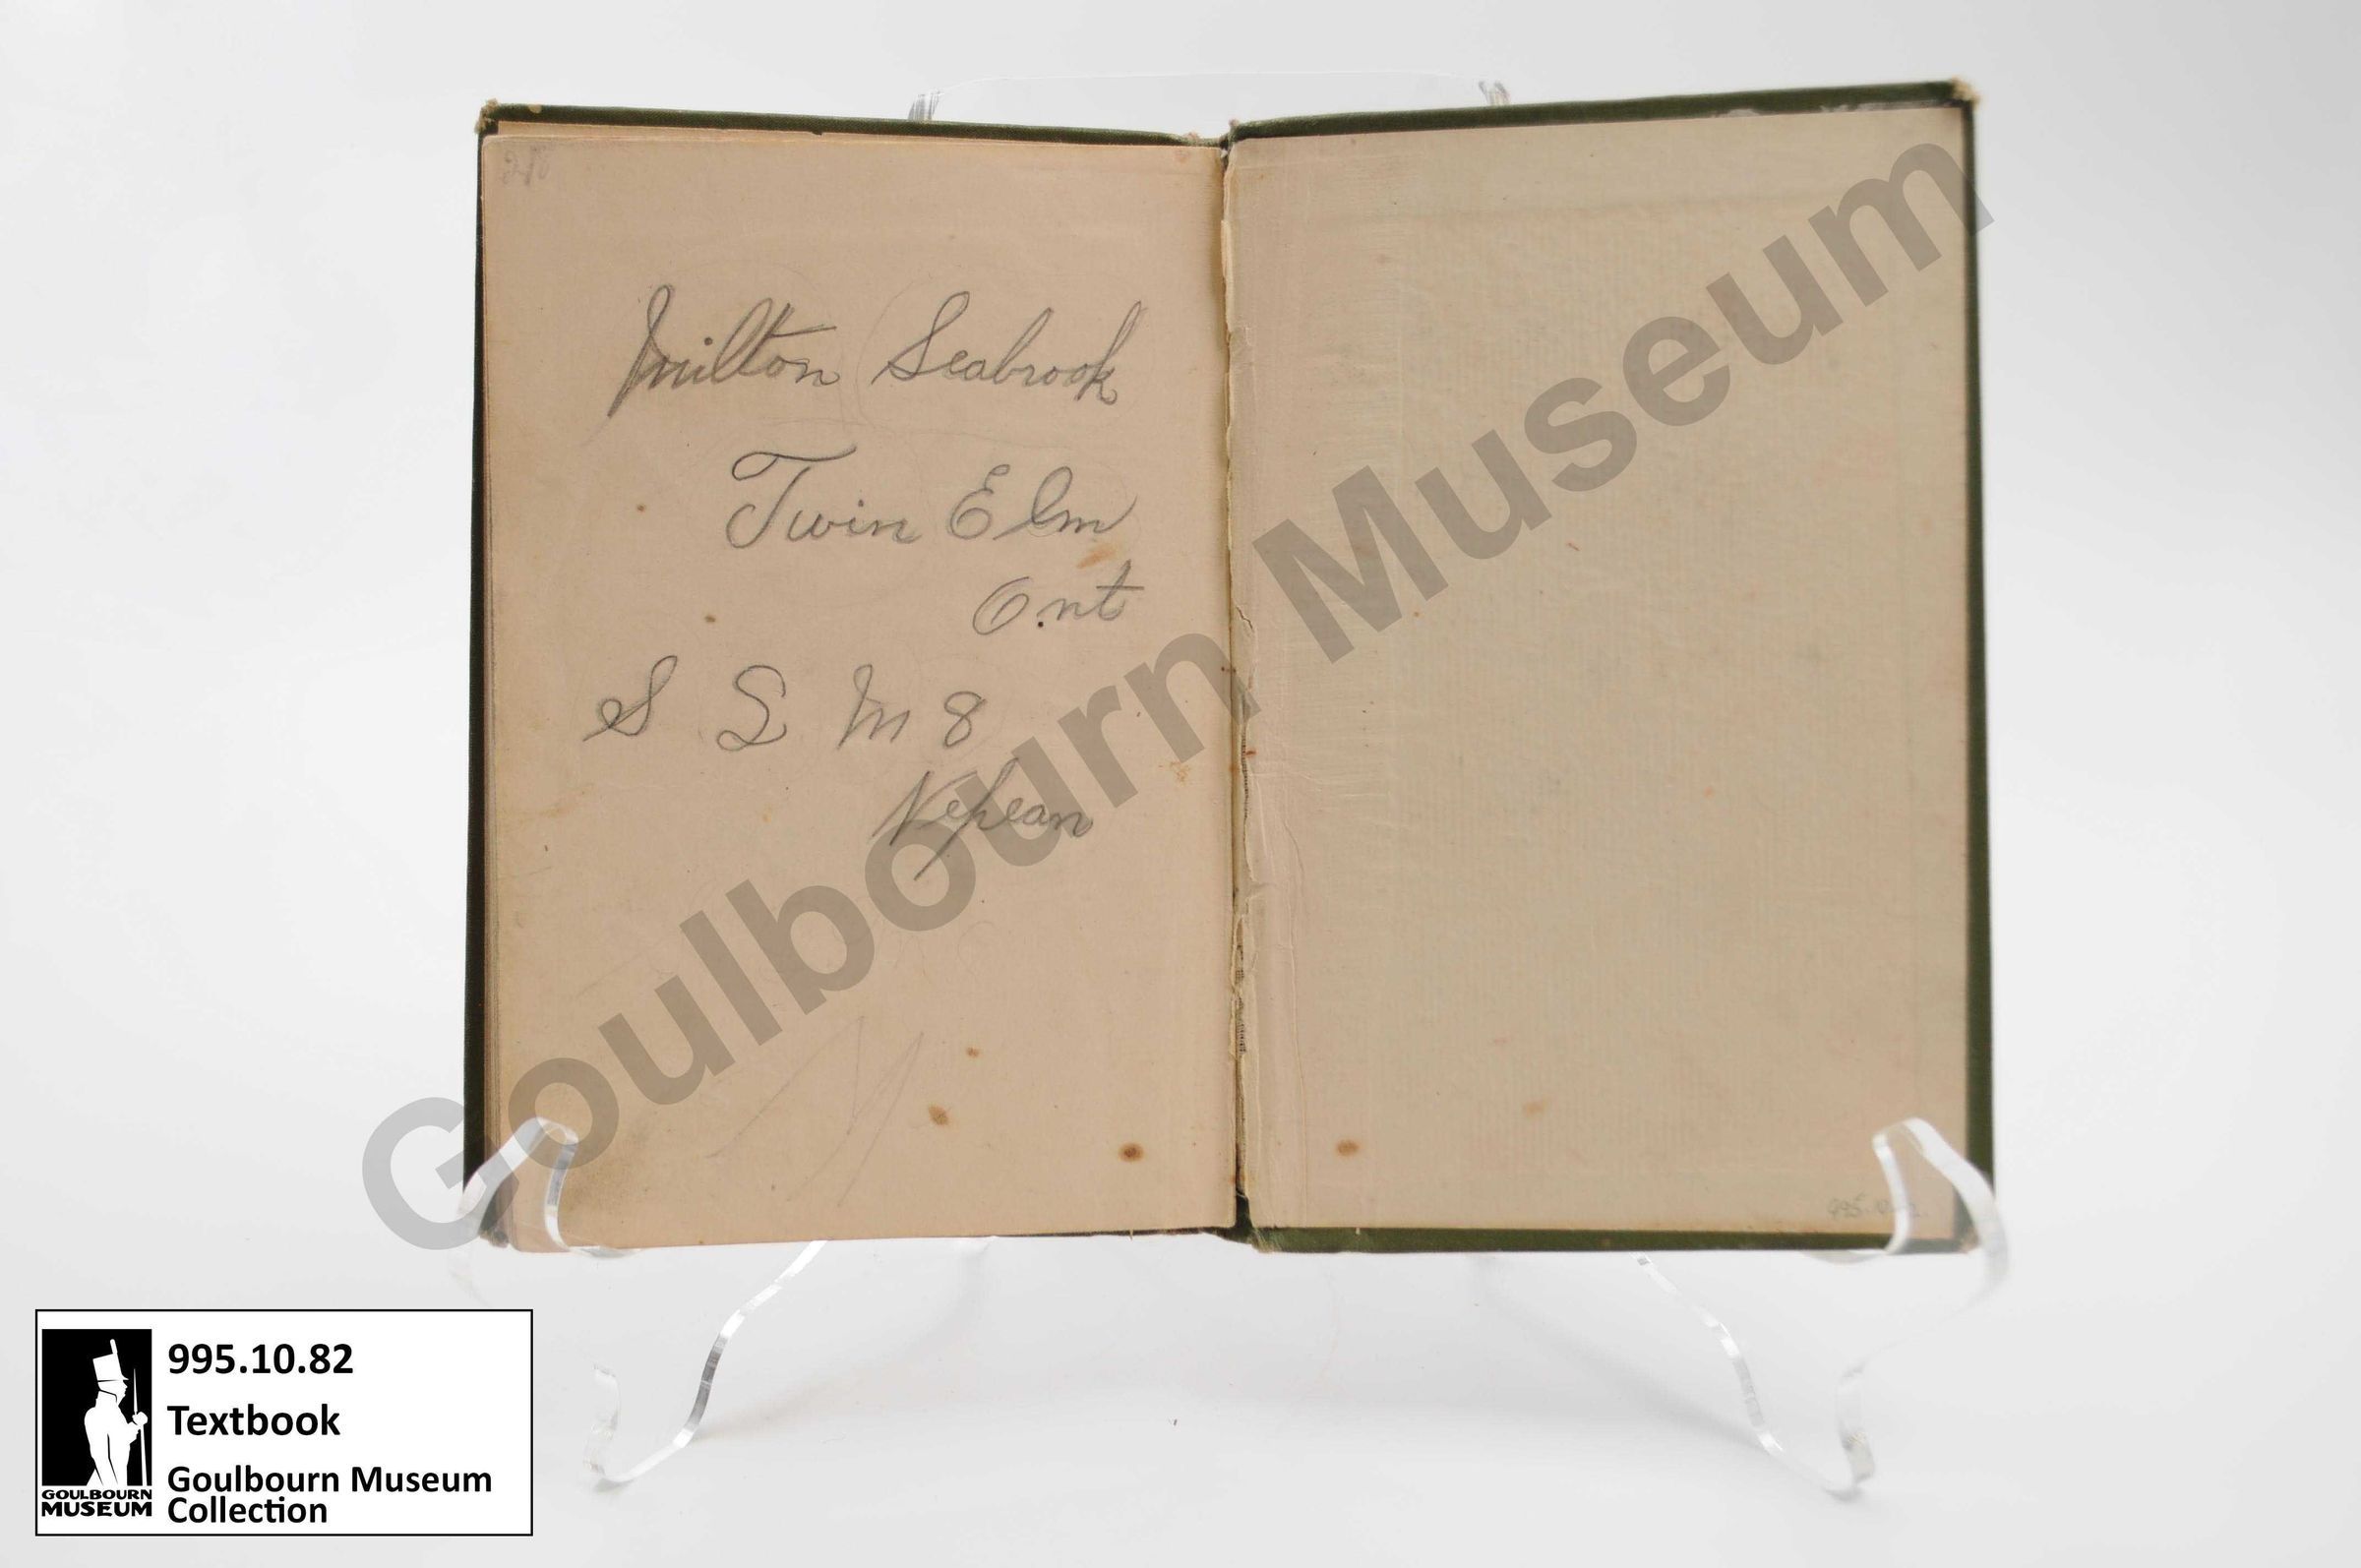 Milton Seabrook
Twin Elm
Ont
S S M 8
Nepean
Goulbourn Museum
995.10.82
Textbook
Goulbourn Museum
Collection
GOULBOURN
MUSEUM